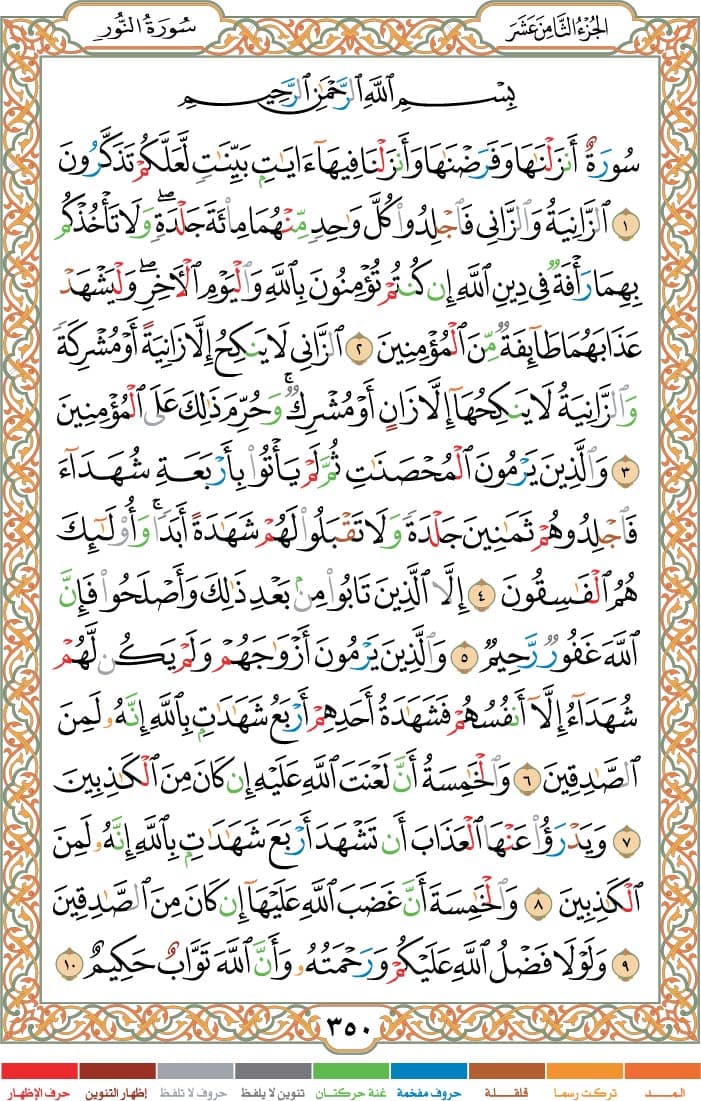 الجزء الثامن عشر
سورة النور
بِسْمِ ٱللَّهِ ٱلرَّحْمَٰنِ ٱلرَّحِيمِ
سُورَةٌ أَنزَلْنَٰهَا وَفَرَضْنَٰهَا وَأَنزَلْنَا فِيهَآ ءَايَٰتٍۭ بَيِّنَٰتٍ لَّعَلَّكُمْ تَذَكَّرُونَ
١ ٱلزَّانِيَةُ وَٱلزَّانِى فَٱجْلِدُوا۟ كُلَّ وَٰحِدٍ مِّنْهُمَا مِا۟ئَةَ جَلْدَةٍ ۖ وَلَا تَأْخُذْكُم
بِهِمَا رَأْفَةٌ فِى دِينِ ٱللَّهِ إِن كُنتُمْ تُؤْمِنُونَ بِٱللَّهِ وَٱلْيَوْمِ ٱلْءَاخِرِ ۖ وَلْيَشْهَدْ
عَذَابَهُمَا طَآئِفَةٌ مِّنَ ٱلْمُؤْمِنِينَ ٢ ٱلزَّانِى لَا يَنكِحُ إِلَّا زَانِيَةً أَوْ مُشْرِكَةً
وَٱلزَّانِيَةُ لَا يَنكِحُهَآ إِلَّا زَانٍ أَوْ مُشْرِكٌ ۚ وَحُرِّمَ ذَٰلِكَ عَلَى ٱلْمُؤْمِنِينَ
٣ وَٱلَّذِينَ يَرْمُونَ ٱلْمُحْصَنَٰتِ ثُمَّ لَمْ يَأْتُوا۟ بِأَرْبَعَةِ شُهَدَآءَ
فَٱجْلِدُوهُمْ ثَمَٰنِينَ جَلْدَةً وَلَا تَقْبَلُوا۟ لَهُمْ شَهَٰدَةً أَبَدًا ۚ وَأُو۟لَٰٓئِكَ
هُمُ ٱلْفَٰسِقُونَ ٤ إِلَّا ٱلَّذِينَ تَابُوا۟ مِنۢ بَعْدِ ذَٰلِكَ وَأَصْلَحُوا۟ فَإِنَّ
ٱللَّهَ غَفُورٌ رَّحِيمٌ ٥ وَٱلَّذِينَ يَرْمُونَ أَزْوَٰجَهُمْ وَلَمْ يَكُن لَّهُمْ
شُهَدَآءُ إِلَّآ أَنفُسُهُمْ فَشَهَٰدَةُ أَحَدِهِمْ أَرْبَعُ شَهَٰدَٰتٍۭ بِٱللَّهِ إِنَّهُۥ لَمِنَ
ٱلصَّٰدِقِينَ ٦ وَٱلْخَٰمِسَةُ أَنَّ لَعْنَتَ ٱللَّهِ عَلَيْهِ إِن كَانَ مِنَ ٱلْكَٰذِبِينَ
٧ وَيَدْرَؤُا۟ عَنْهَا ٱلْعَذَابَ أَن تَشْهَدَ أَرْبَعَ شَهَٰدَٰتٍۭ بِٱللَّهِ إِنَّهُۥ لَمِنَ
ٱلْكَٰذِبِينَ ٨ وَٱلْخَٰمِسَةَ أَنَّ غَضَبَ ٱللَّهِ عَلَيْهَآ إِن كَانَ مِنَ ٱلصَّٰدِقِينَ
٩ وَلَوْلَا فَضْلُ ٱللَّهِ عَلَيْكُمْ وَرَحْمَتُهُۥ وَأَنَّ ٱللَّهَ تَوَّابٌ حَكِيمٌ ١٠
٣٥٠
المــــد تركت رسما قلقـــلة حروف مفخمة غنة حركتان تنوين لا يلفظ حروف لا تلفظ إظهار التنوين حرف الإظهار